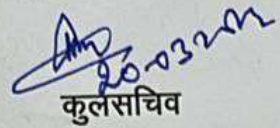 20-03-2012
कुलसचिव